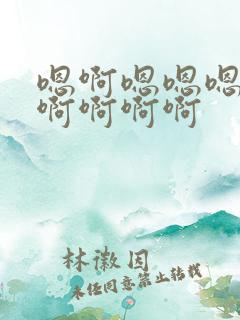 嗯啊嗯嗯嗯
啊啊啊啊
林徽因
未经同意禁止转载